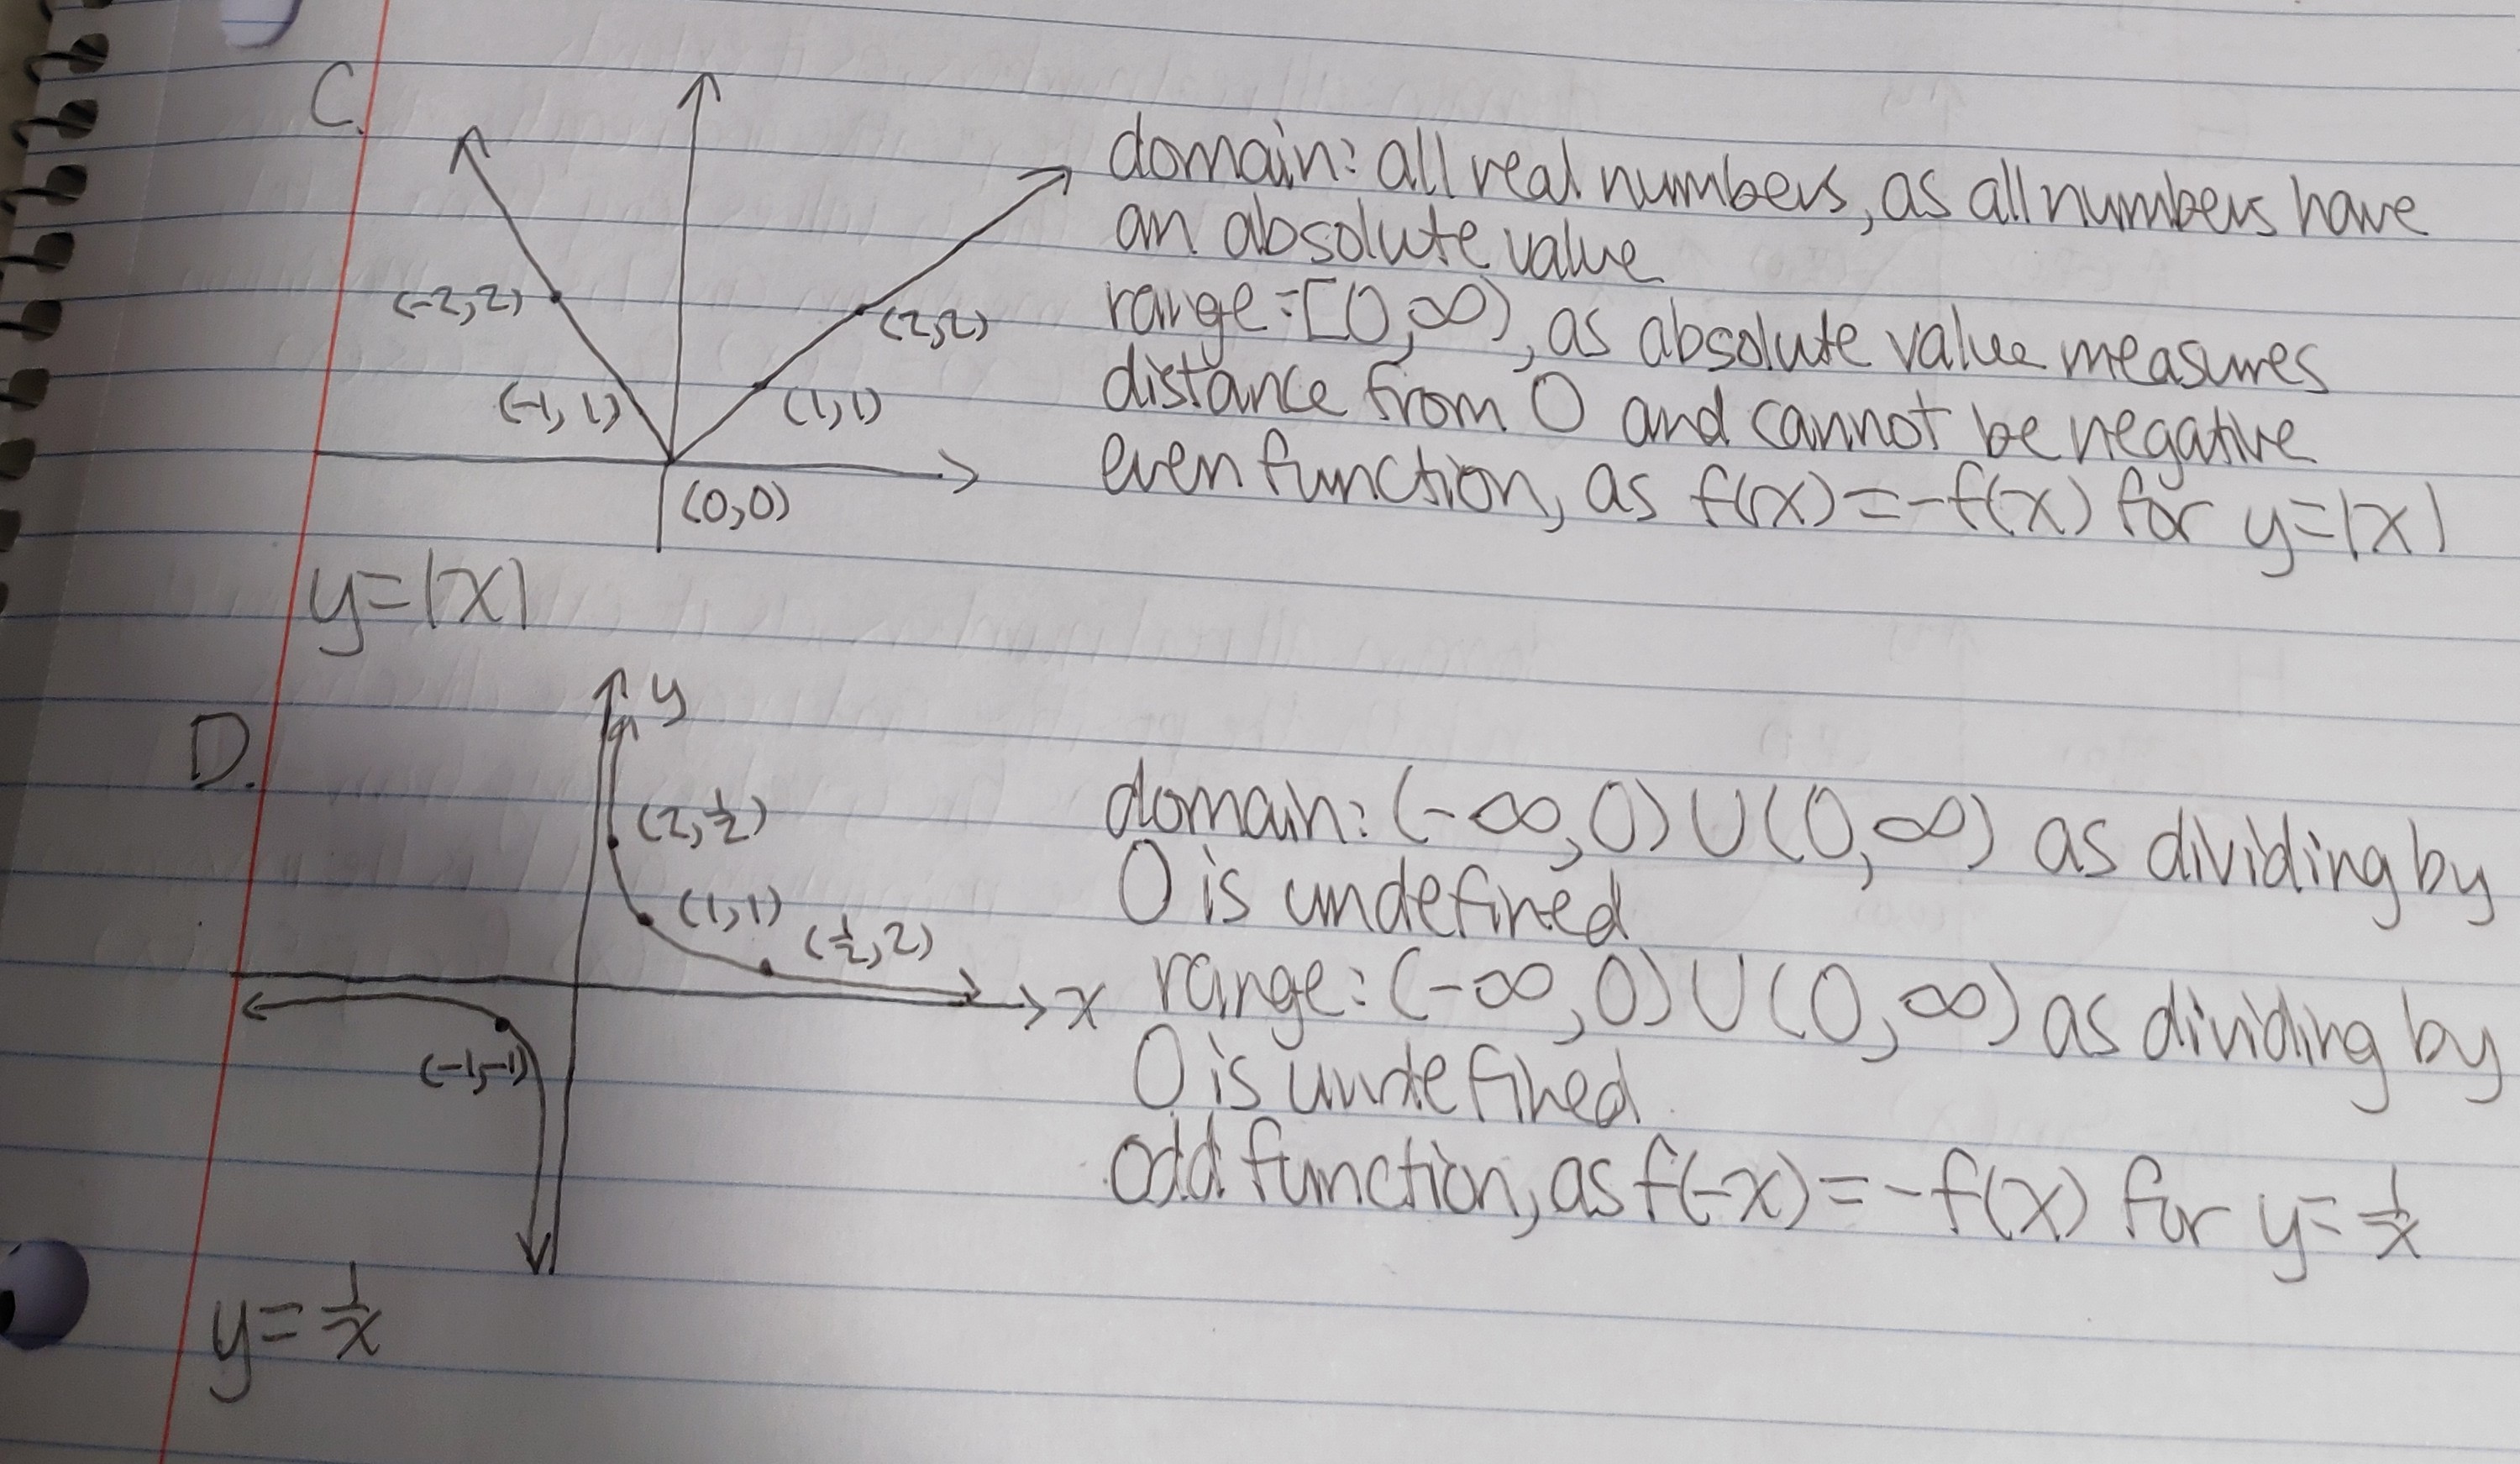 C.
(-2,2)
(2,2)
(-1, 1)
(1,1)
(0,0)
y=|x|
domain: all real numbers, as all numbers have
an absolute value
range: [0,∞), as absolute value measures
distance from 0 and cannot be negative
even function, as f(x)=-f(x) for y=|x|
D.
y
(2,1/2)
(1,1)
(1/2,2)
x
(-1,-1)
y=1/x
domain: (-∞,0)∪(0,∞) as dividing by
0 is undefined
range: (-∞,0)∪(0,∞) as dividing by
0 is undefined.
odd function, as f(-x)=-f(x) for y=1/x